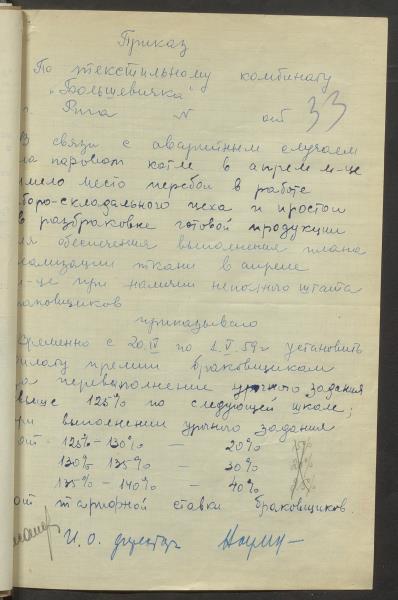 Приказ
По текстильному комбинату
"Большевичка"
г. Рига № от 33
В связи с аварийным случаем
на паровом котле в апреле м-це
имело место перебои в работе
боро-складального цеха и простои
в разбраковке готовой продукции
для обеспечения выполнения плана
реализации ткани в апреле
м-це при наличии неполного штата
браковщиков
приказываю
Временно с 20.IV по 1.V.59г установить
выплату премии браковщикам
за перевыполнение урочного задания
выше 125% по следующей шкале;
при выполнении урочного задания
от 125% - 130% - 20%
130% 135% - 30%
135% - 140% - 40%
от тарифной ставки браковщиков.
И. О. директор